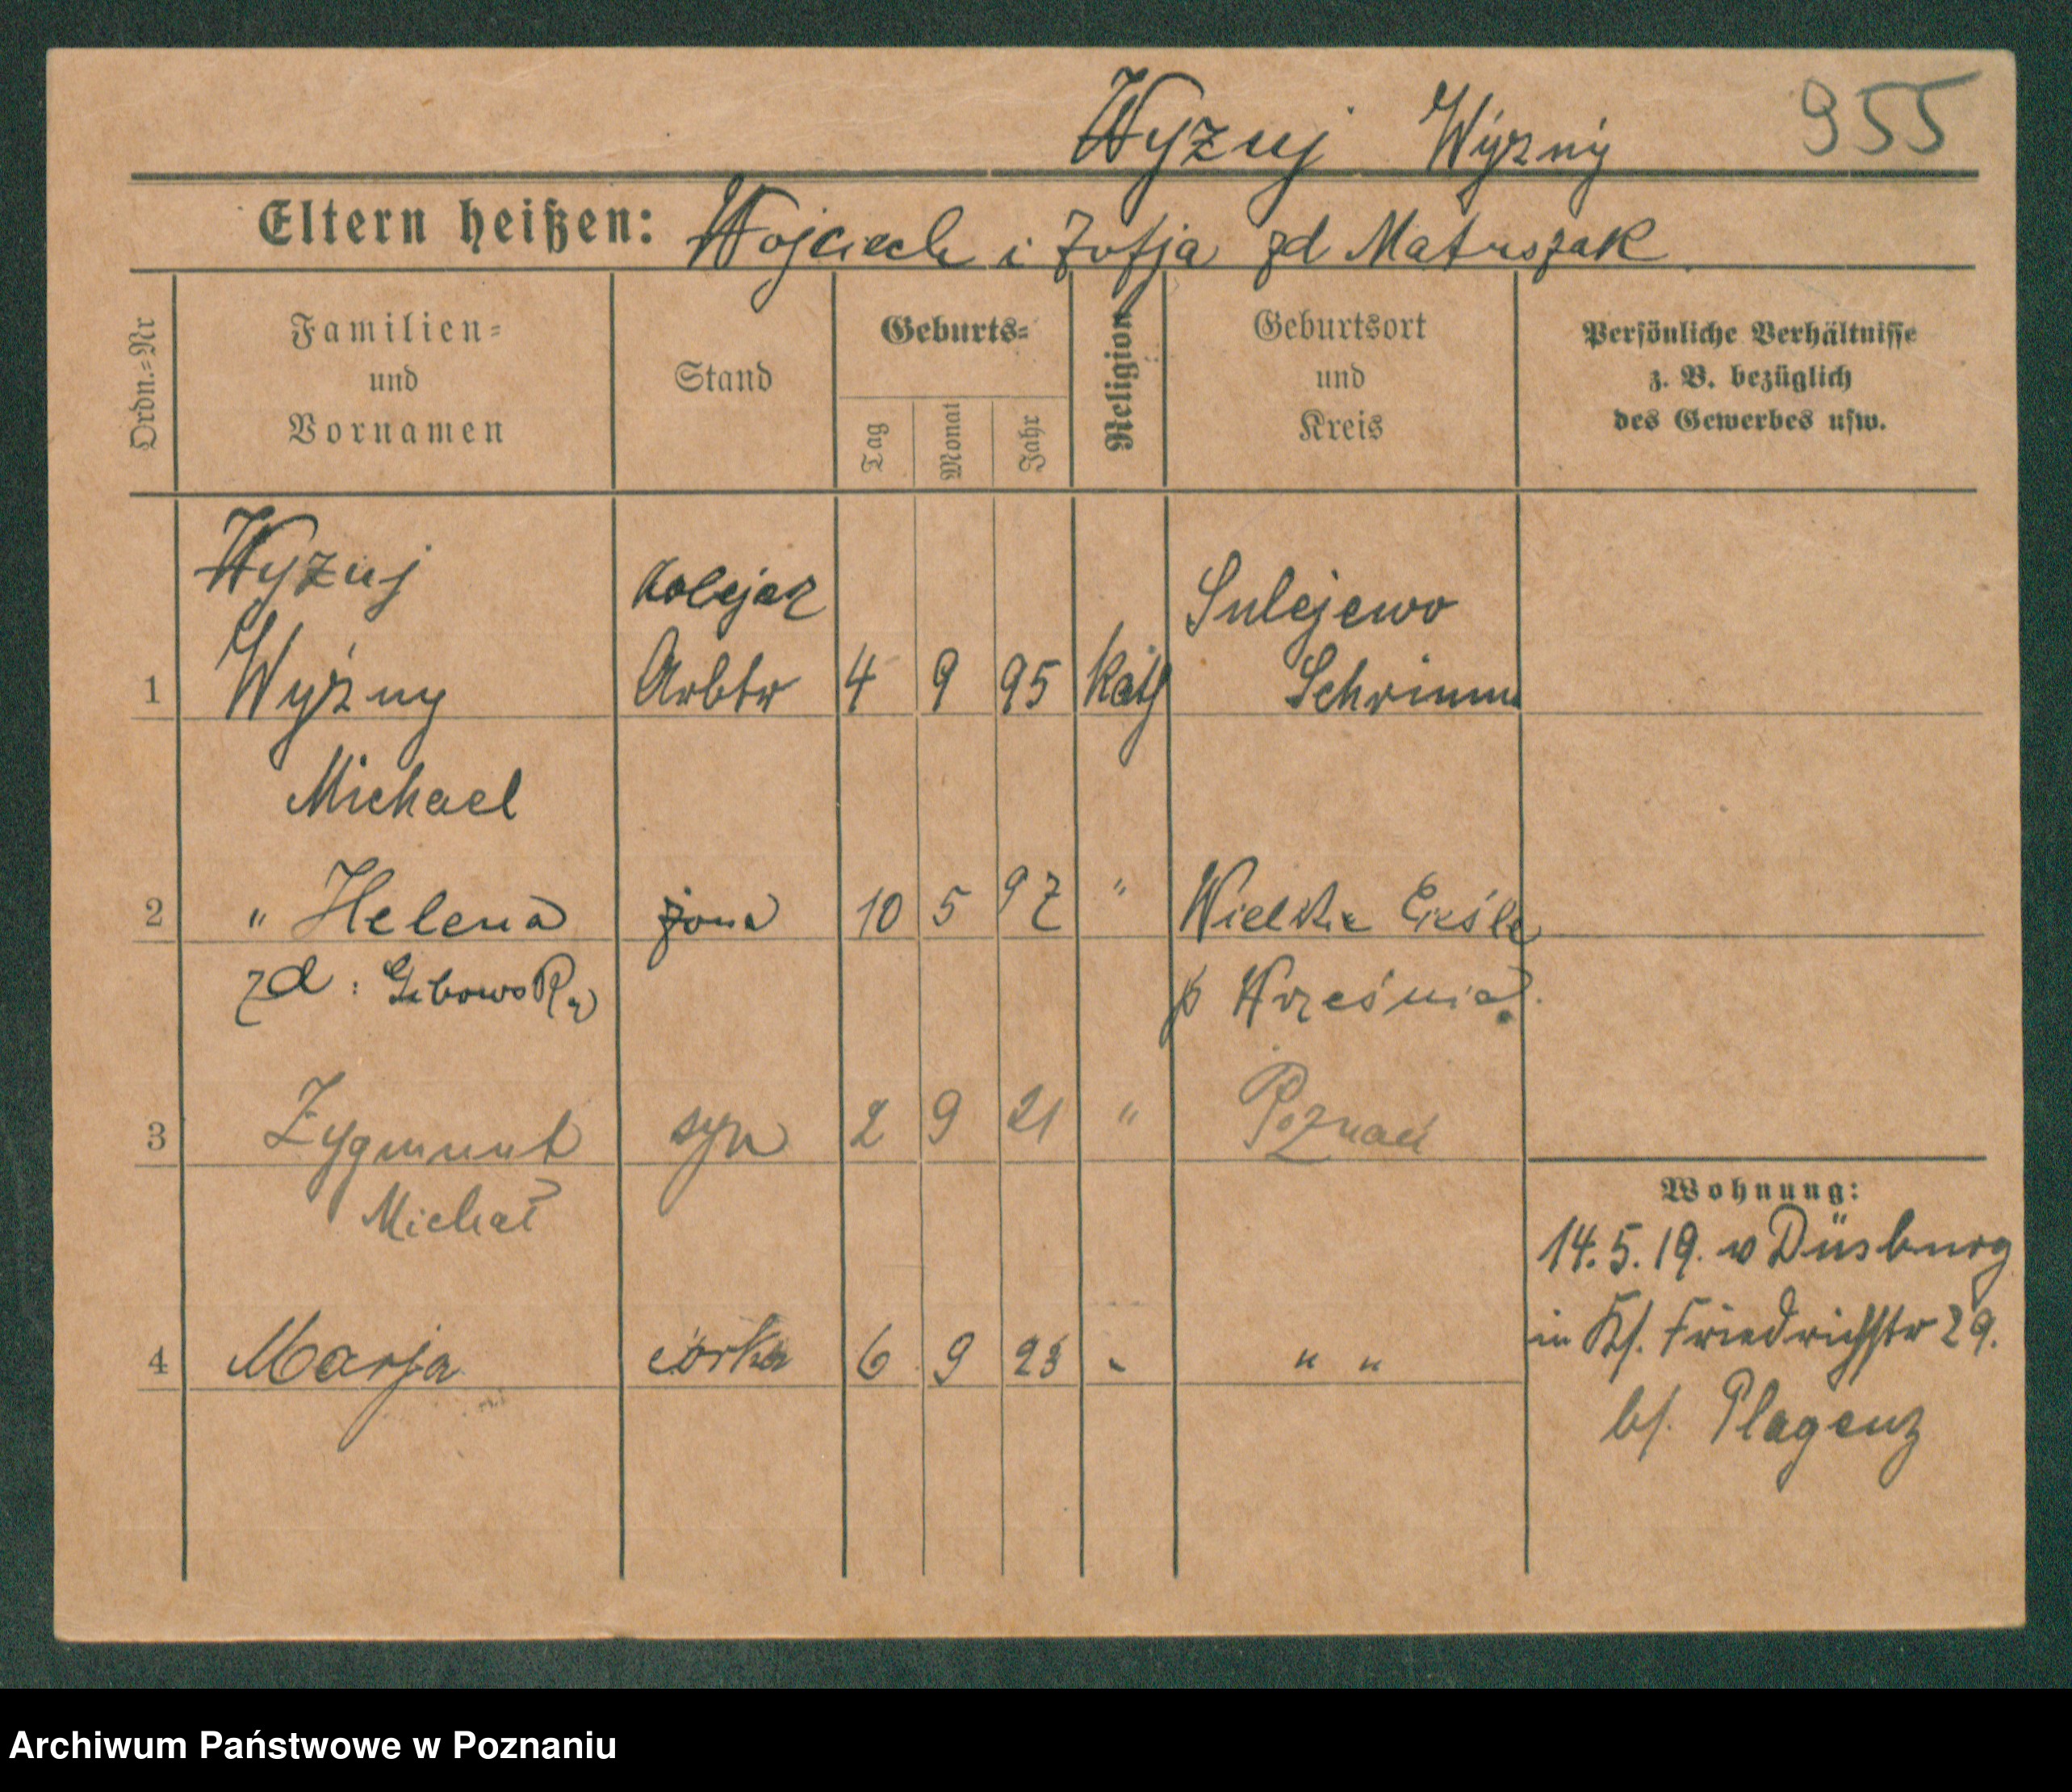 Wyzuj Wyzny 955
Eltern heißen: Wojciech i Zofja zd Matuszak
Ordn.=Nr
Familien=
und
Vornamen
Stand
Geburts=
Tag
Monat
Jahr
Religion
Geburtsort
und
Kreis
Persönliche Verhältnisse
z. B. bezüglich
des Gewerbes usw.
Wyzuj kolejaz Sulejewo
1 Wyzny Arbtr 4 9 95 Kath Schrimm
Michael
2 " Helena żona 10 5 97 "
zd: p Września.
3 Zygmunt syn 2 9 21 " Poznań
Michał
4 Marja córka 6 9 23 " " "
Wohnung:
14.5.19. v Düsburg
in Friedrichstr 29.
bf. Plagenz
Archiwum Państwowe w Poznaniu